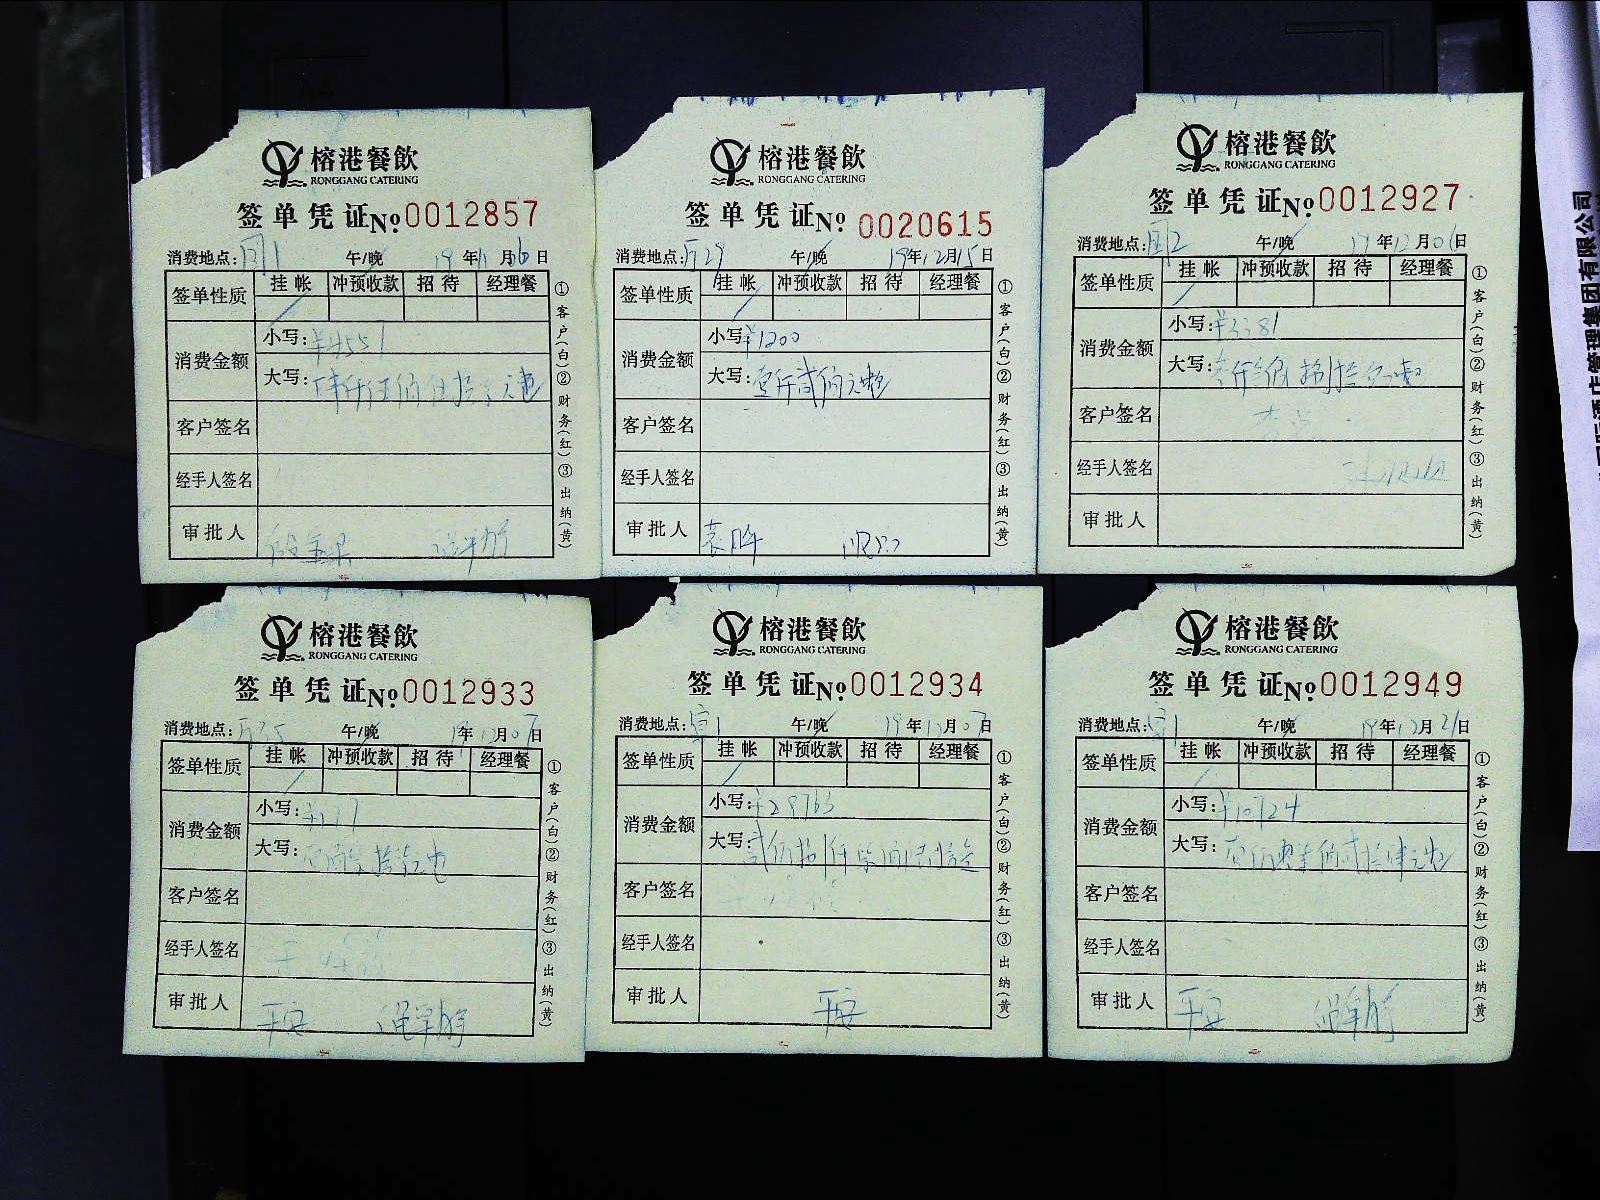 榕港餐飲
RONGGANG CATERING
签单凭证No.0012857
消费地点: 午/晚 19年11月16日
签单性质 挂帐 冲预收款 招待 经理餐
消费金额 小写:¥4551
大写:
客户签名
经手人签名
审批人
①客户(白)②财务(红)③出纳(黄)
榕港餐飲
RONGGANG CATERING
签单凭证No.0020615
消费地点:厅29 午/晚 19年12月15日
签单性质 挂帐 冲预收款 招待 经理餐
消费金额 小写:¥1200
大写:壹仟贰佰元整
客户签名
经手人签名
审批人
①客户(白)②财务(红)③出纳(黄)
榕港餐飲
RONGGANG CATERING
签单凭证No.0012927
消费地点: 午/晚 19年12月06日
签单性质 挂帐 冲预收款 招待 经理餐
消费金额 小写:¥3381
大写:
客户签名
经手人签名
审批人
①客户(白)②财务(红)③出纳(黄)
榕港餐飲
RONGGANG CATERING
签单凭证No.0012933
消费地点: 午/晚 19年12月07日
签单性质 挂帐 冲预收款 招待 经理餐
消费金额 小写:
大写:
客户签名
经手人签名
审批人 平安
①客户(白)②财务(红)③出纳(黄)
榕港餐飲
RONGGANG CATERING
签单凭证No.0012934
消费地点: 午/晚 19年12月07日
签单性质 挂帐 冲预收款 招待 经理餐
消费金额 小写:¥28763
大写:
客户签名
经手人签名
审批人 平安
①客户(白)②财务(红)③出纳(黄)
榕港餐飲
RONGGANG CATERING
签单凭证No.0012949
消费地点: 午/晚 19年12月21日
签单性质 挂帐 冲预收款 招待 经理餐
消费金额 小写:¥10724
大写:
客户签名
经手人签名
审批人 平安
①客户(白)②财务(红)③出纳(黄)
酒店管理集团有限公司